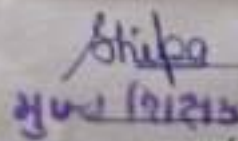 Shilpa
મુખ્ય શિક્ષક